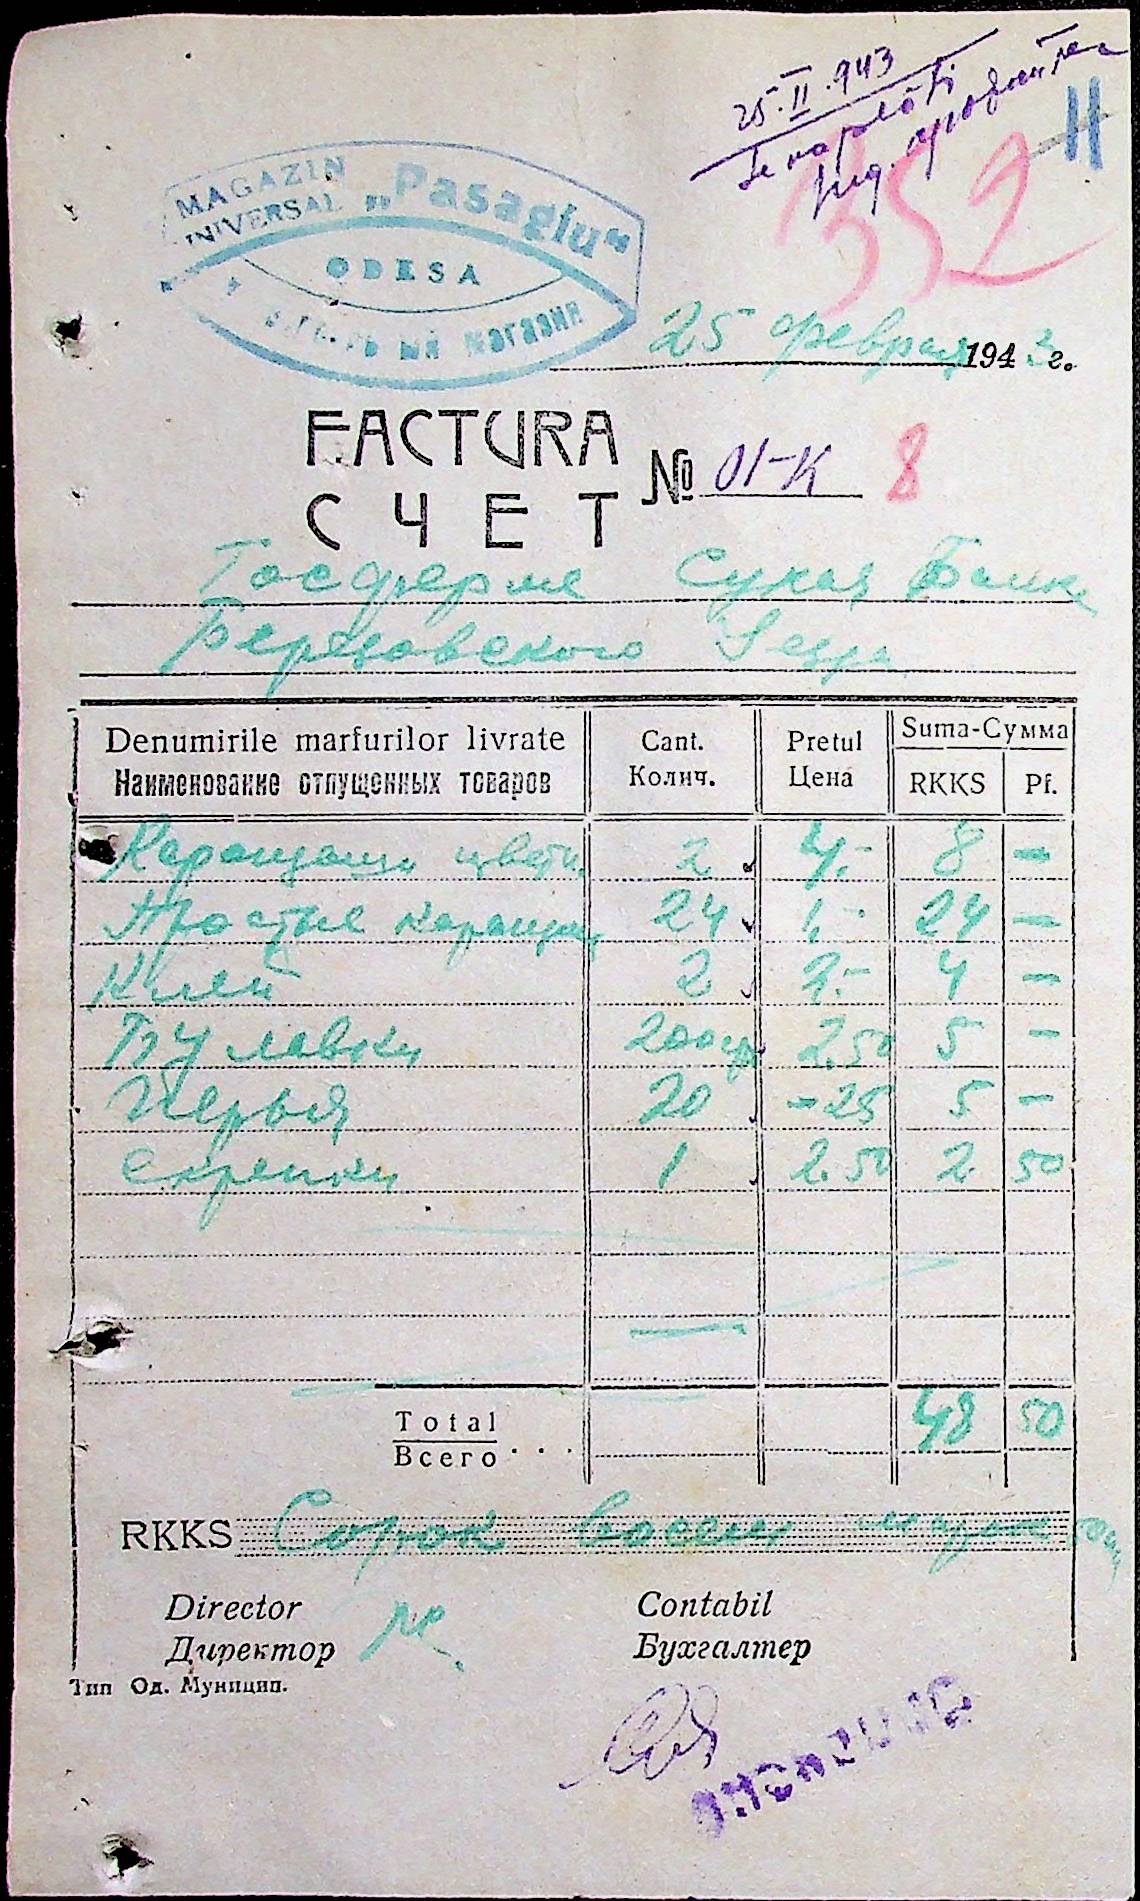 25.II.943
Se va plăti
352
11
MAGAZIN
UNIVERSAL „Pasagiu“
ODESA
магазин
25 февраля 1943 г.
FACTURA
СЧЕТ № 01-К 8
Госферме Сухая Балка
Березовского
Denumirile marfurilor livrate Cant. Pretul Suma-Сумма
Наименование отпущенных товаров Колич. Цена RKKS Pf.
Карандаши цветн. 2 4.- 8 -
Простые карандаши 24 1.- 24 -
Клей 2 2.- 4 -
Булавки 200гр 2.50 5 -
Перья 20 -25 5 -
Скрепки 1 2.50 2 50
Total 48 50
Всего . . .
RKKS Сорок восем марок
Director Contabil
Директор Бухгалтер
Тип Од. Муницип.